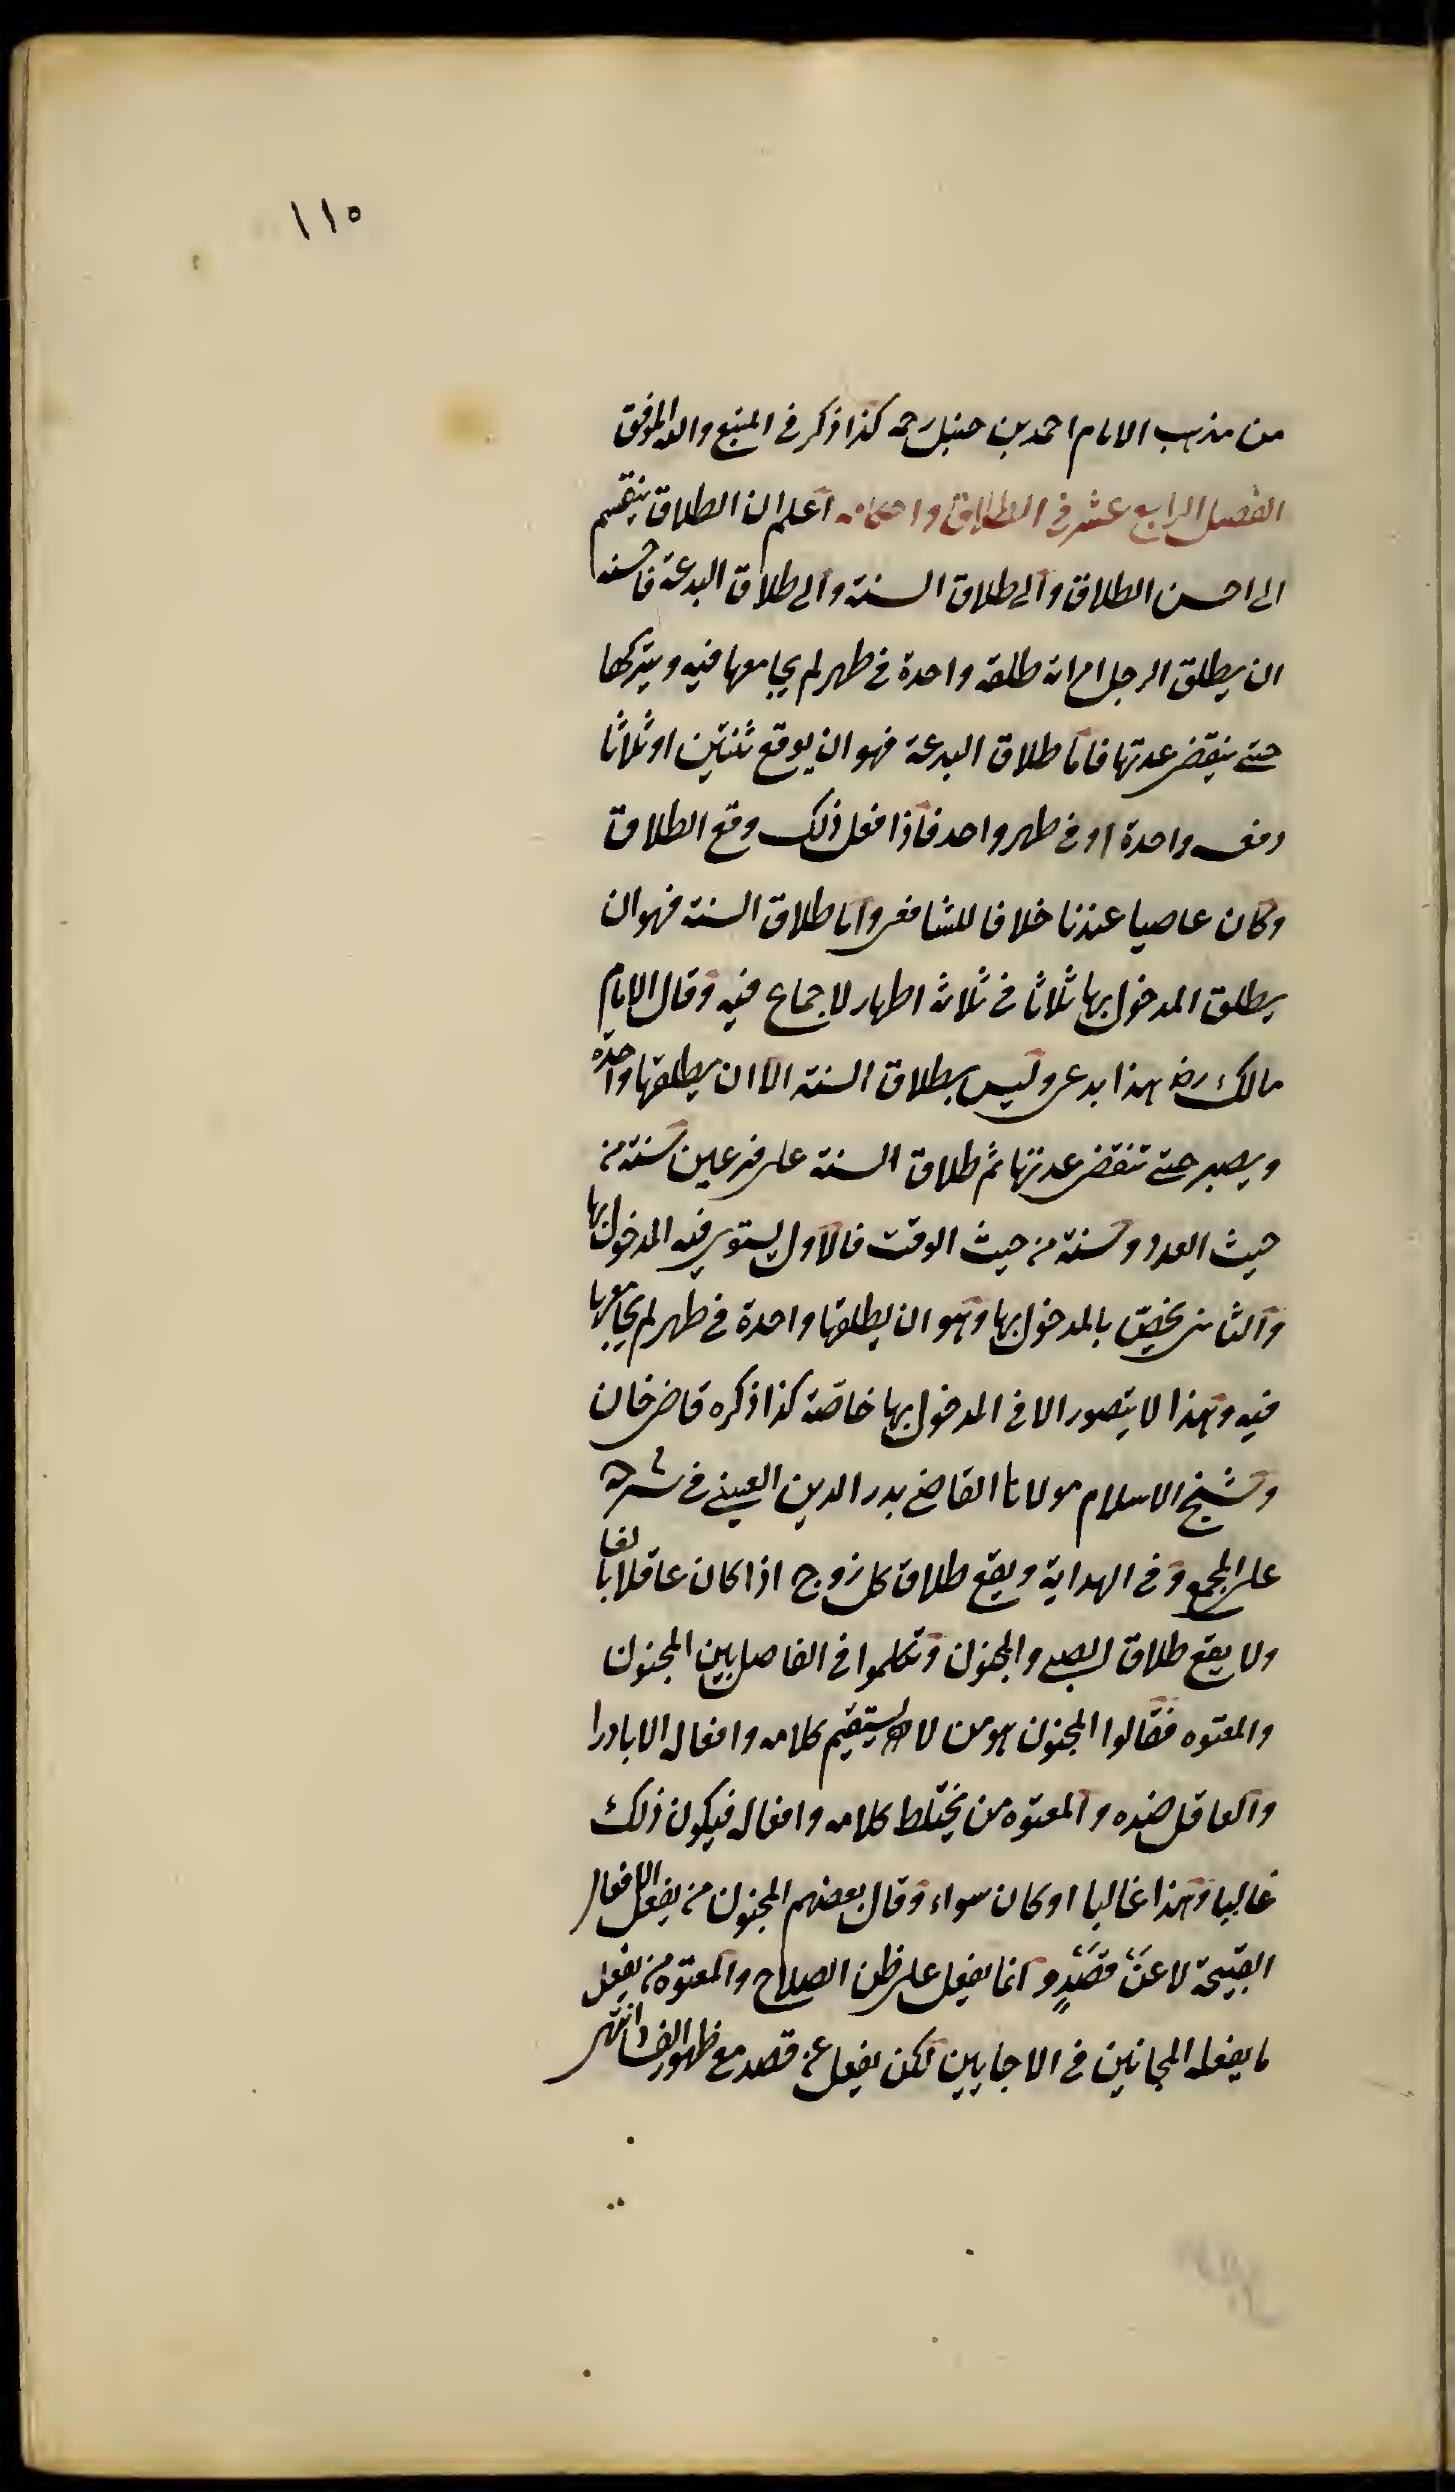 ١١٥
من مذهب الامام احمد بن حنبل رحمه كذا ذكر في المنبع والله الموفق
الفصل الرابع عشر في الطلاق واحكامه اعلم ان الطلاق ينقسم
الى احسن الطلاق والى طلاق السنة والى طلاق البدعة فاحسنه
ان يطلق الرجل امراته طلقة واحدة في طهر لم يجامعها فيه ويتركها
حتى ينقضى عدتها فاما طلاق البدعة فهو ان يوقع ثنتين او ثلاثا
دفعه واحدة او في طهر واحد فاذا فعل ذلك وقع الطلاق
وكان عاصيا عندنا خلافا للشافعى واما طلاق السنة فهو ان
يطلق المدخول بها ثلاثا في ثلاثة اطهار لا جماع فيه وقال الامام
مالك رضه هذا بدعى وليس بطلاق السنة الا ان يطلقها واحدة
ويصبر حتى تنقضى عدتها ثم طلاق السنة على نوعين سنة من
حيث العدد وسنة من حيث الوقت فالاول يستوى فيه المدخول بها
والثانى يختص بالمدخول بها وهو ان يطلقها واحدة في طهر لم يجامعها
فيه وهذا لا يتصور الا في المدخول بها خاصّة كذا ذكره قاضى خان
وشيخ الاسلام مولانا القاضي بدر الدين العيني في شرحه
على المجمع وفي الهداية ويقع طلاق كل زوج اذا كان عاقلا بالغا
ولا يقع طلاق الصبي والمجنون وتكلموا في الفاصل بين المجنون
والمعتوه فقالوا المجنون هو من لا يستقيم كلامه وافعاله الا نادرا
والعاقل ضده والمعتوه من يختلط كلامه وافعاله فيكون ذلك
غالبا وهذا غالبا او كان سواء وقال بعضهم المجنون من يفعل الافعال
القبيحة لا عَنْ قصَدٍ وانما يفعل على ظن الصلاح والمعتوه من يفعل
ما يفعله المجانين في الاحايين لكن يفعل عن قصد مع ظهور الفساد انتهى